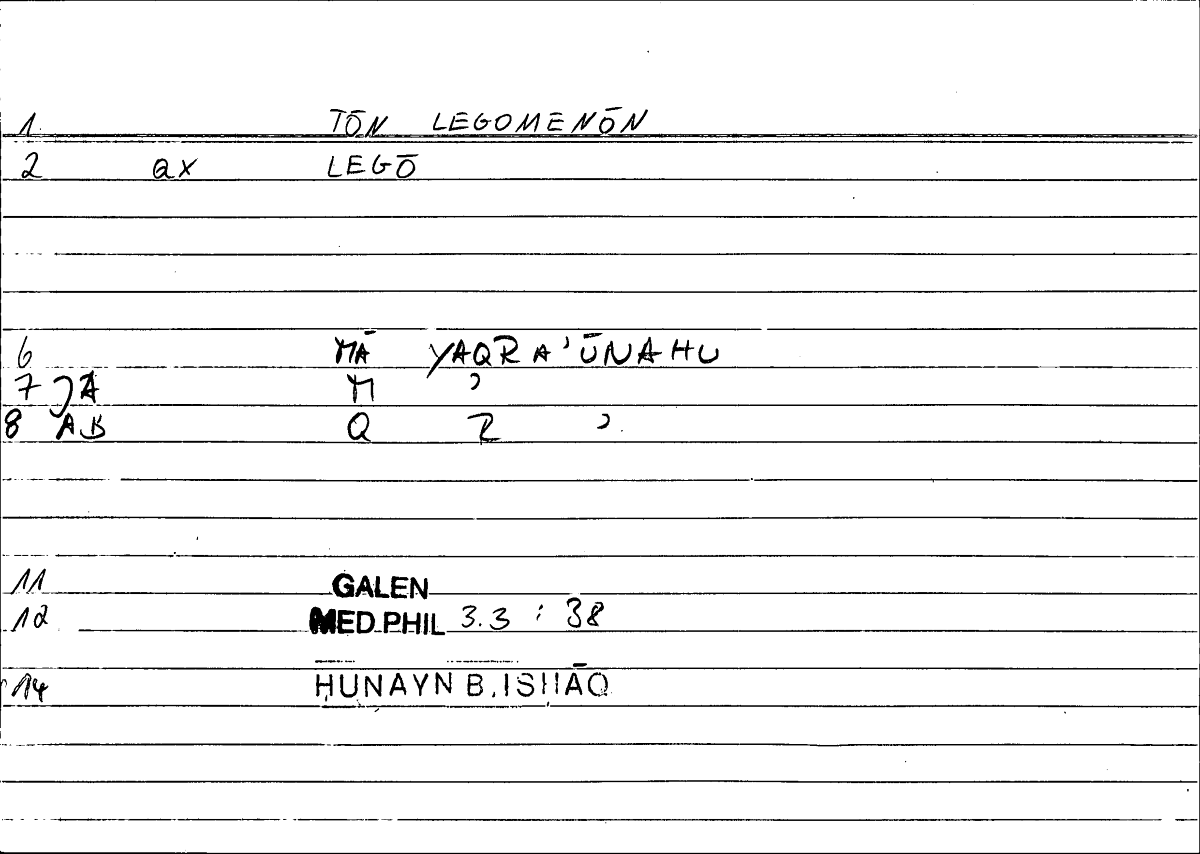 1 TŌN LEGOMENŌN
2 QX LEGŌ
6 MĀ YAQRA'ŪNAHU
7 JA M ʾ
8 AB Q R ʾ
11 GALEN
12 MED.PHIL 3.3 : 38
14 ḤUNAYN B. ISḤĀQ